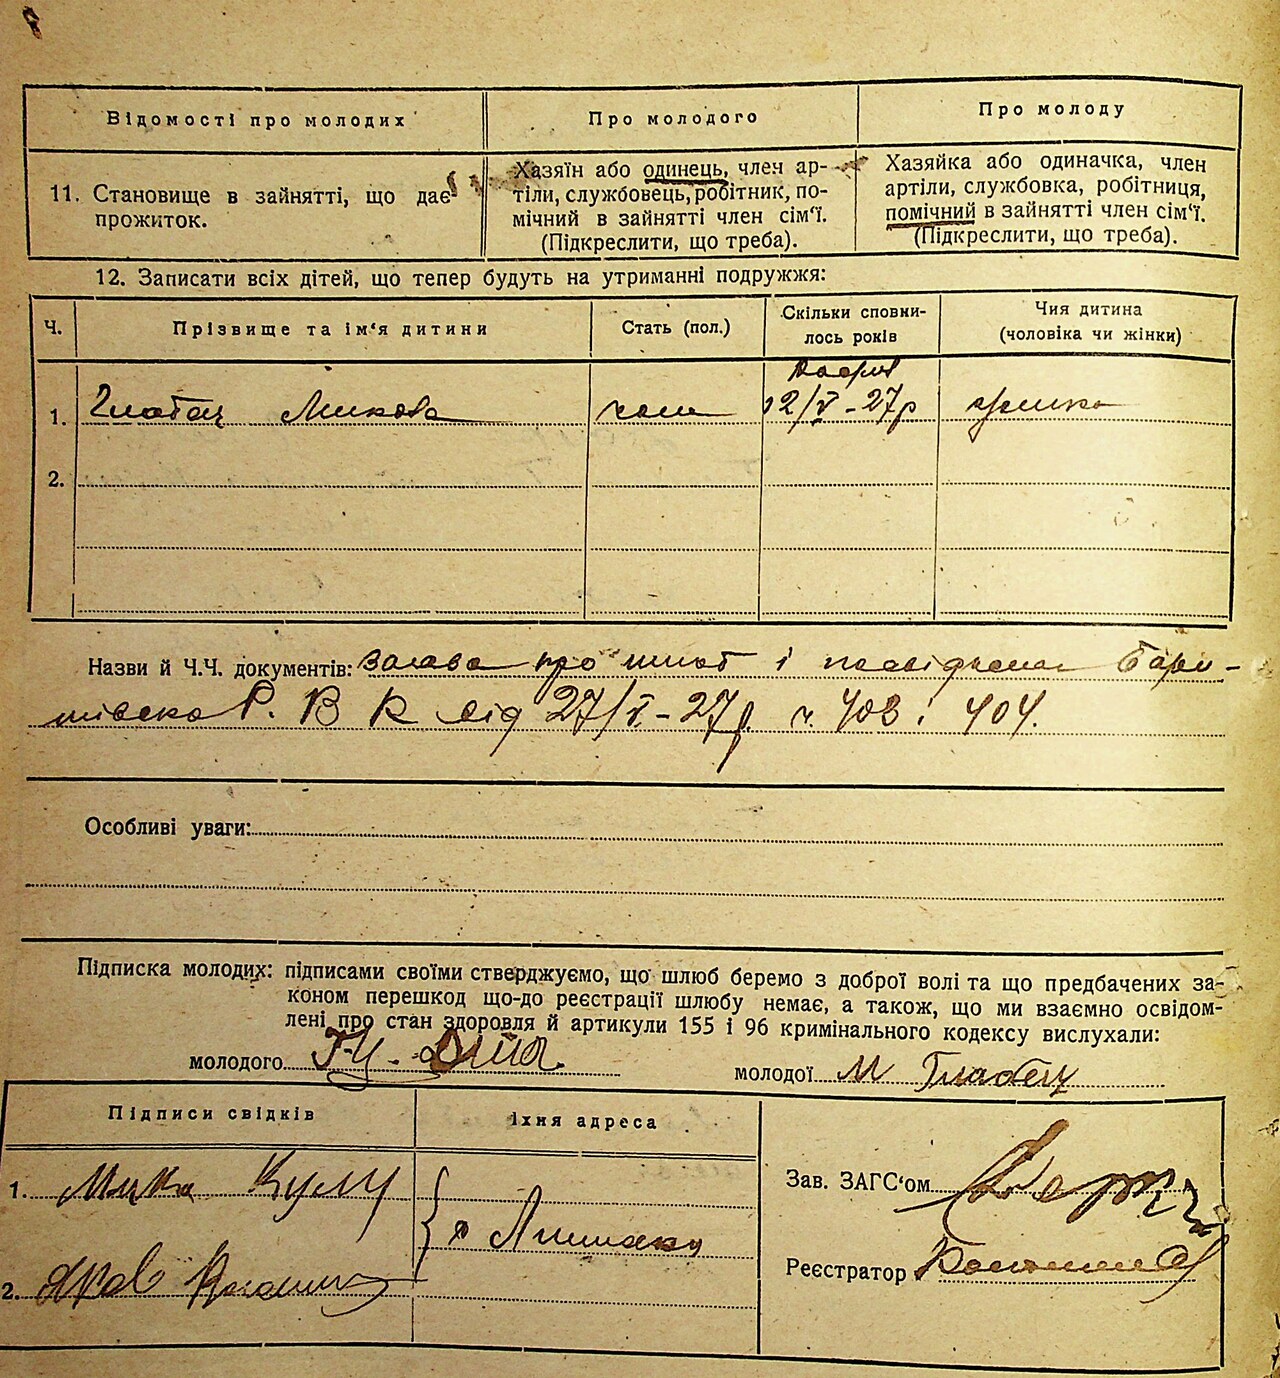 Відомості про молодих
Про молодого
Про молоду
11. Становище в зайнятті, що дає
прожиток.
Хазяїн або одинець, член ар-
тіли, службовець, робітник, по-
мічний в зайнятті член сім'ї.
(Підкреслити, що треба).
Хазяйка або одиначка, член
артіли, службовка, робітниця,
помічний в зайнятті член сім'ї.
(Підкреслити, що треба).
12. Записати всіх дітей, що тепер будуть на утриманні подружжя:
Ч.
Прізвище та ім'я дитини
Стать (пол.)
Скільки сповни-
лось років
Чия дитина
(чоловіка чи жінки)
1. Микола
12/V-27р
2.
Назви й Ч.Ч. документів: Заява про шлюб і
Р. В К від 27/V-27р. ч. 403 і 404.
Особливі уваги:
Підписка молодих: підписами своїми стверджуємо, що шлюб беремо з доброї волі та що предбачених за-
коном перешкод що-до реєстрації шлюбу немає, а також, що ми взаємно освідом-
лені про стан здоровля й артикули 155 і 96 кримінального кодексу вислухали:
молодого
молодої М
Підписи свідків
їхня адреса
1.
2.
Зав. ЗАГС'ом
Реєстратор